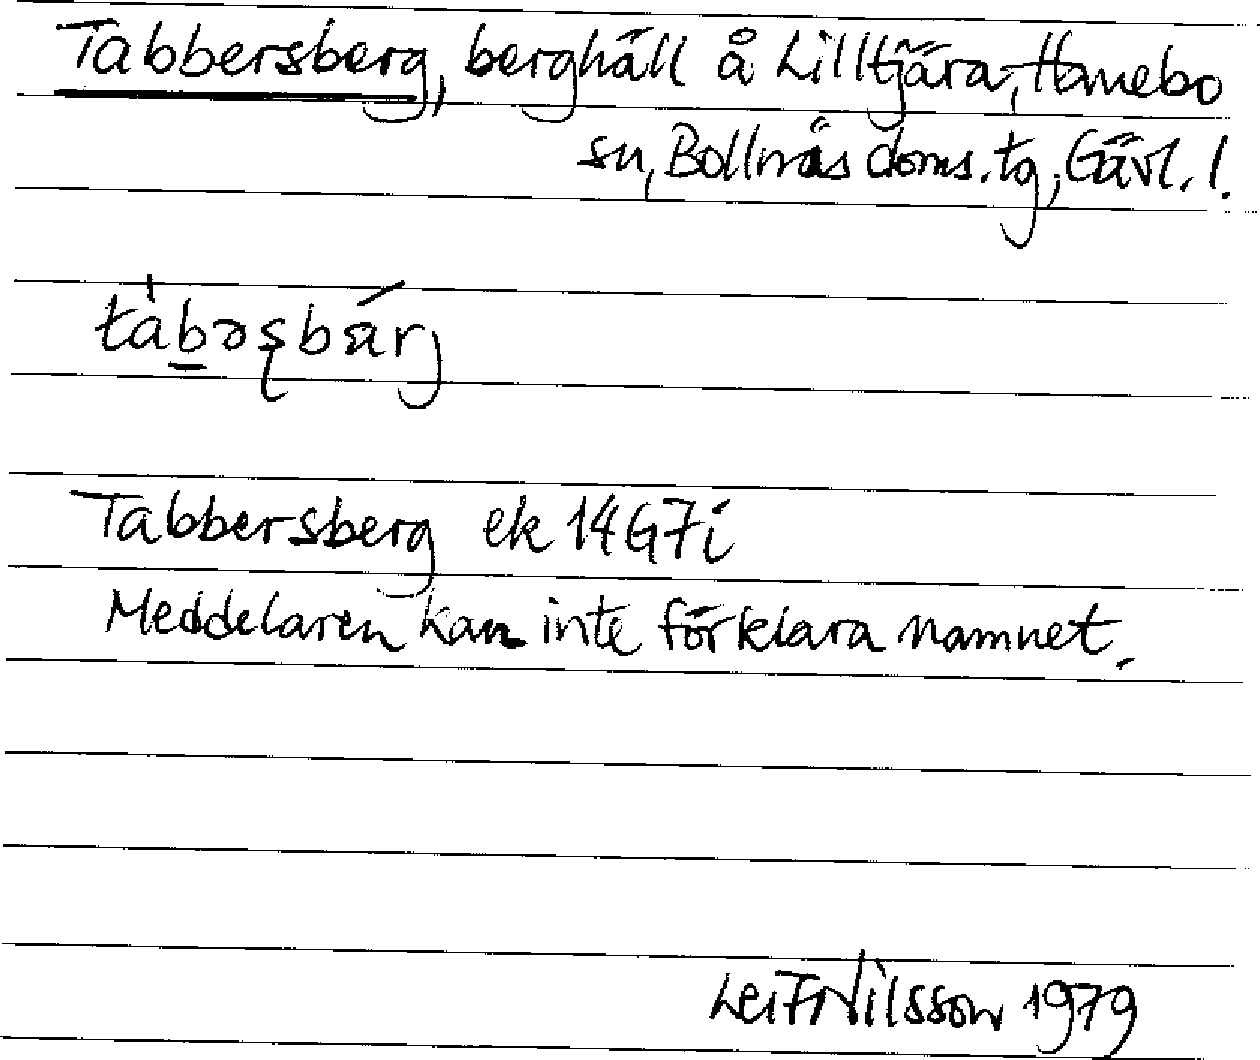 Tabbersberg, berghäll å Lilltjära, Hanebo
sn, Bollnäs doms.tg, Gävl. l.
tàb̲əʂbárj
Tabbersberg ek 14G7i
Meddelaren kan inte förklara namnet.
Leif Nilsson 1979